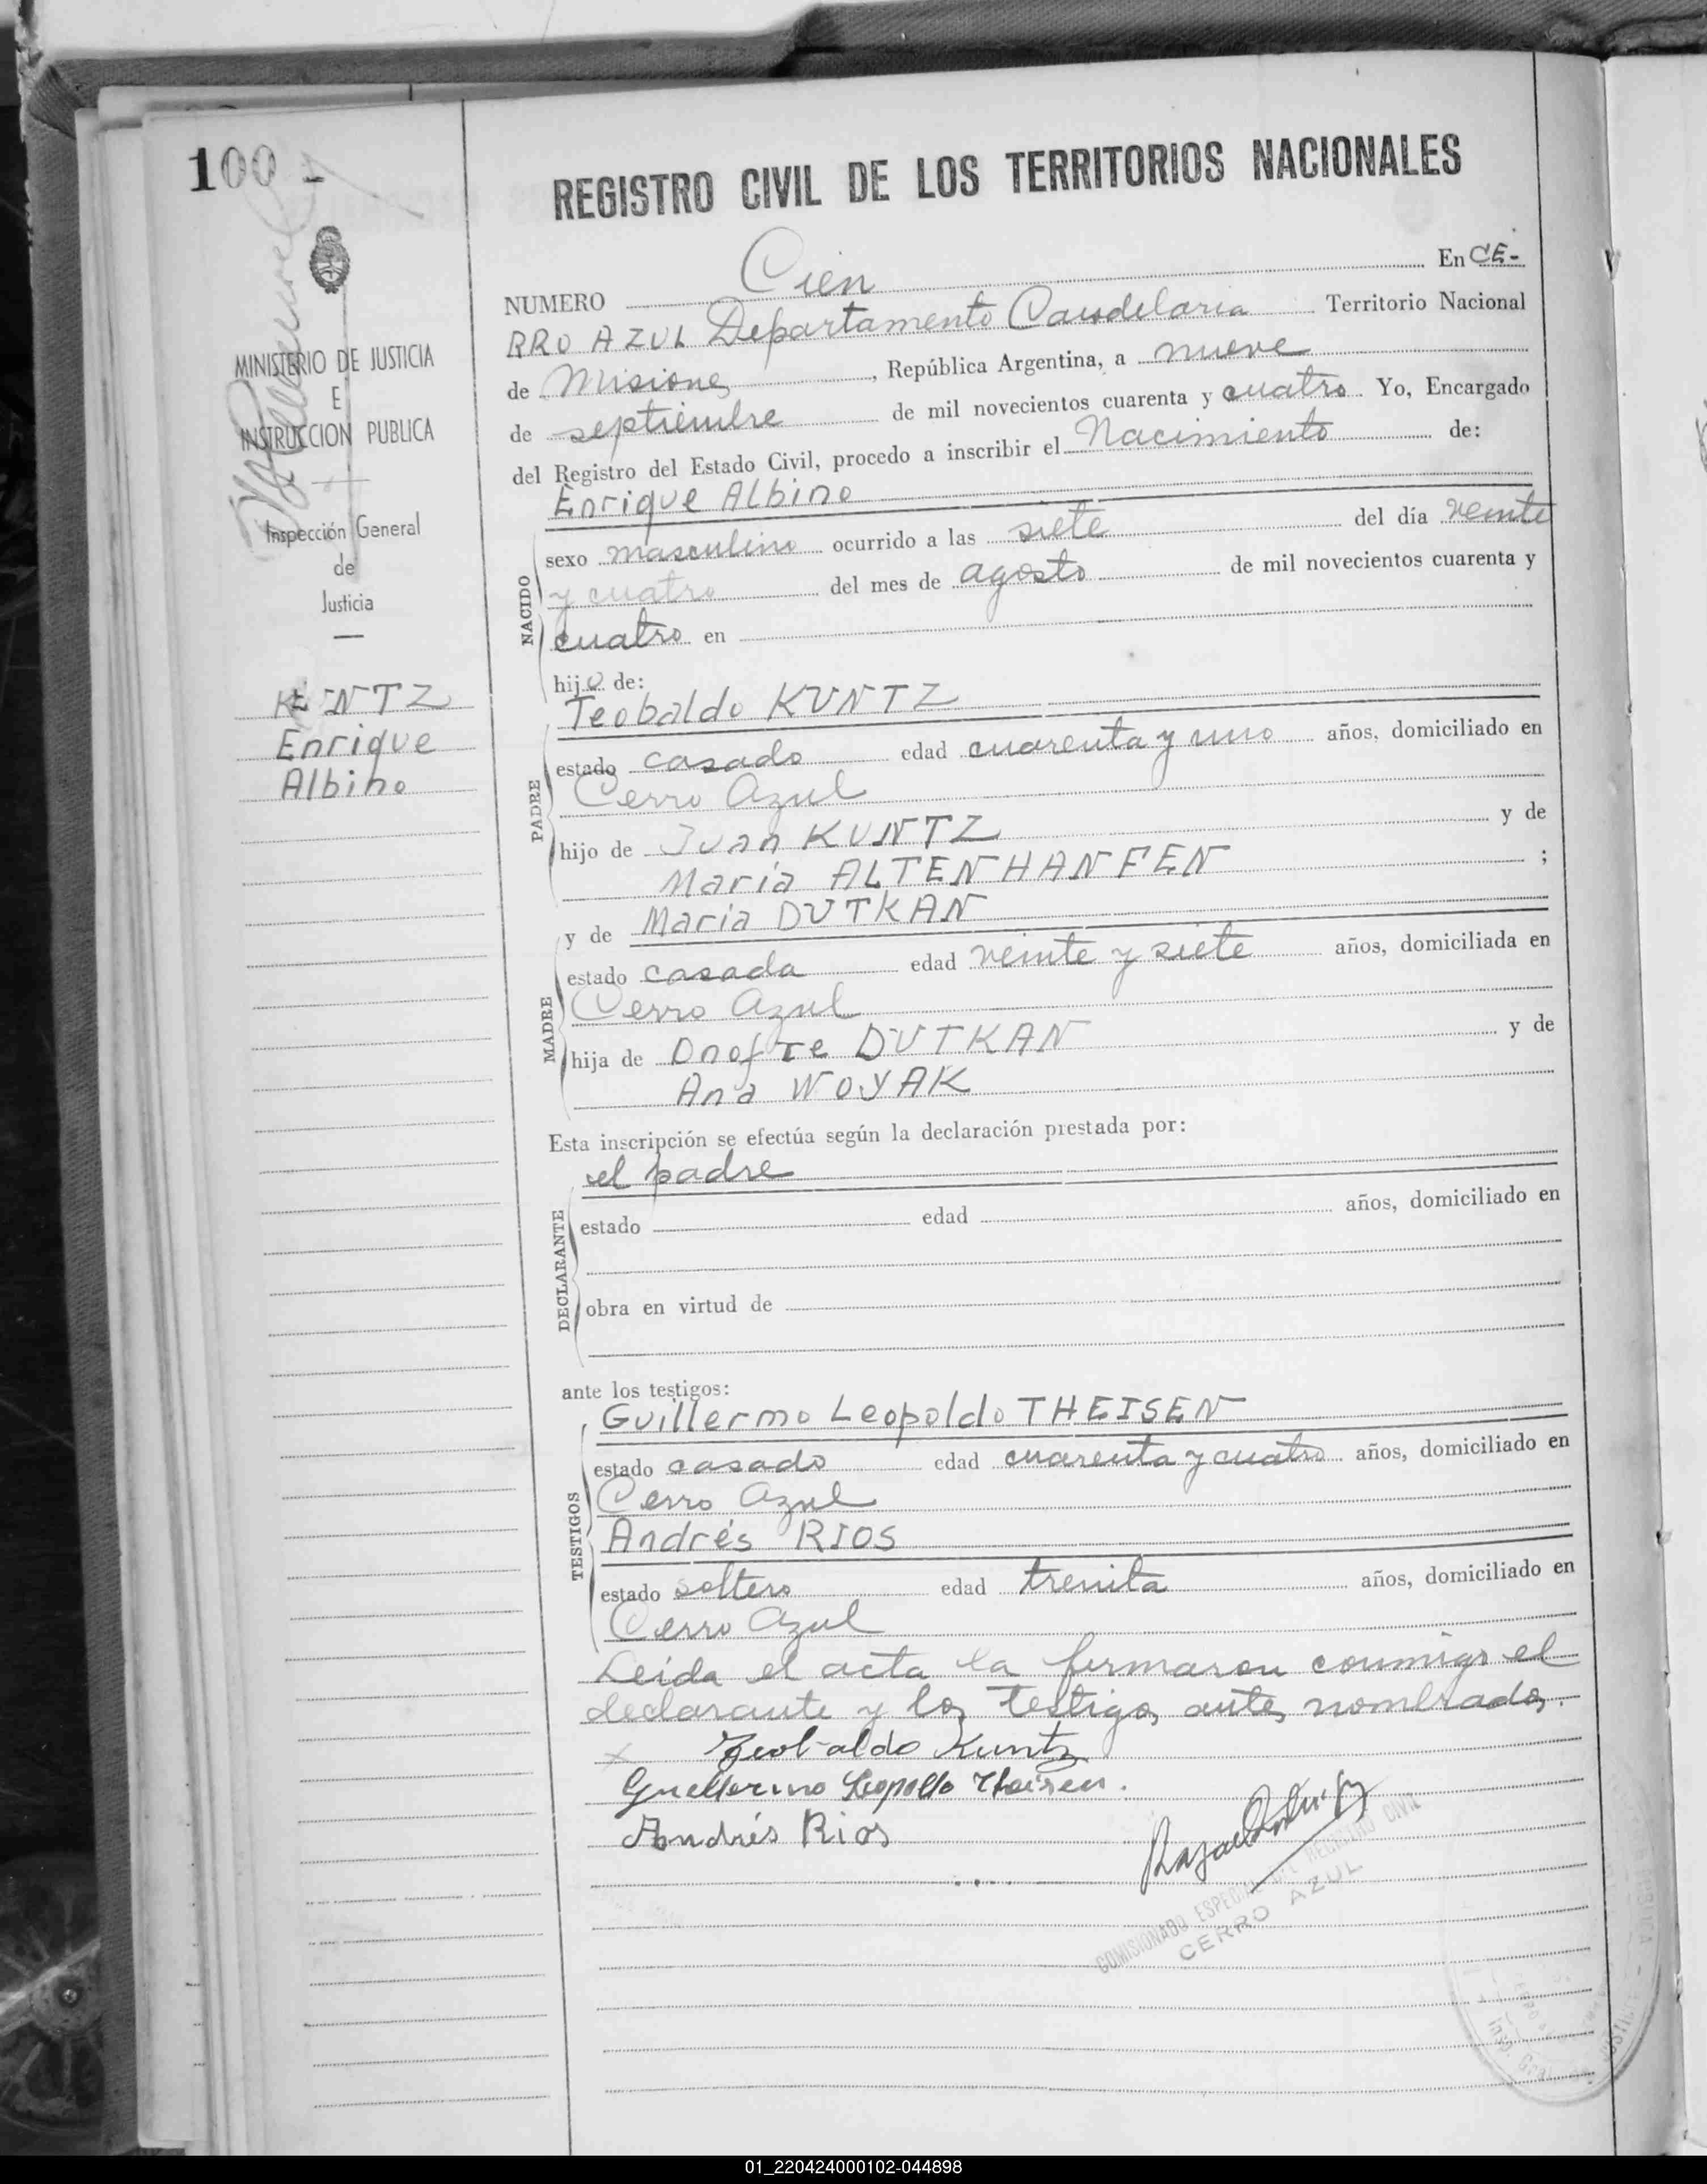 100 -
REGISTRO CIVIL DE LOS TERRITORIOS NACIONALES
NUMERO Cien En CE-
RRO AZUL Departamento Candelaria Territorio Nacional
de Misiones, República Argentina, a nueve
de septiembre de mil novecientos cuarenta y cuatro. Yo, Encargado
del Registro del Estado Civil, procedo a inscribir el Nacimiento de:
Enrique Albino
NACIDO
sexo masculino ocurrido a las siete del día veinte
y cuatro del mes de agosto de mil novecientos cuarenta y
cuatro en
hijo de:
Teobaldo KUNTZ
PADRE
estado casado edad cuarenta y uno años, domiciliado en
Cerro Azul
hijo de Juan KUNTZ y de
Maria ALTENHANFEN ;
y de Maria DUTKAN
MADRE
estado casada edad veinte y siete años, domiciliada en
Cerro Azul
hija de Onofre DUTKAN y de
Ana WOYAK
Esta inscripción se efectúa según la declaración prestada por:
el padre
DECLARANTE
estado edad años, domiciliado en
obra en virtud de
ante los testigos:
Guillermo Leopoldo THEISEN
TESTIGOS
estado casado edad cuarenta y cuatro años, domiciliado en
Cerro Azul
Andrés RIOS
estado soltero edad treinta años, domiciliado en
Cerro Azul
Leída el acta la firmaron conmigo el
declarante y los testigos antes nombrados.
x Teobaldo Kuntz
Guillermo Leopoldo Theisen.
Andrés Rios
COMISIONADO ESPECIAL DEL REGISTRO CIVIL
CERRO AZUL
MINISTERIO DE JUSTICIA
E
INSTRUCCION PUBLICA
Inspección General
de
Justicia
KUNTZ
Enrique
Albino
01_220424000102-044898